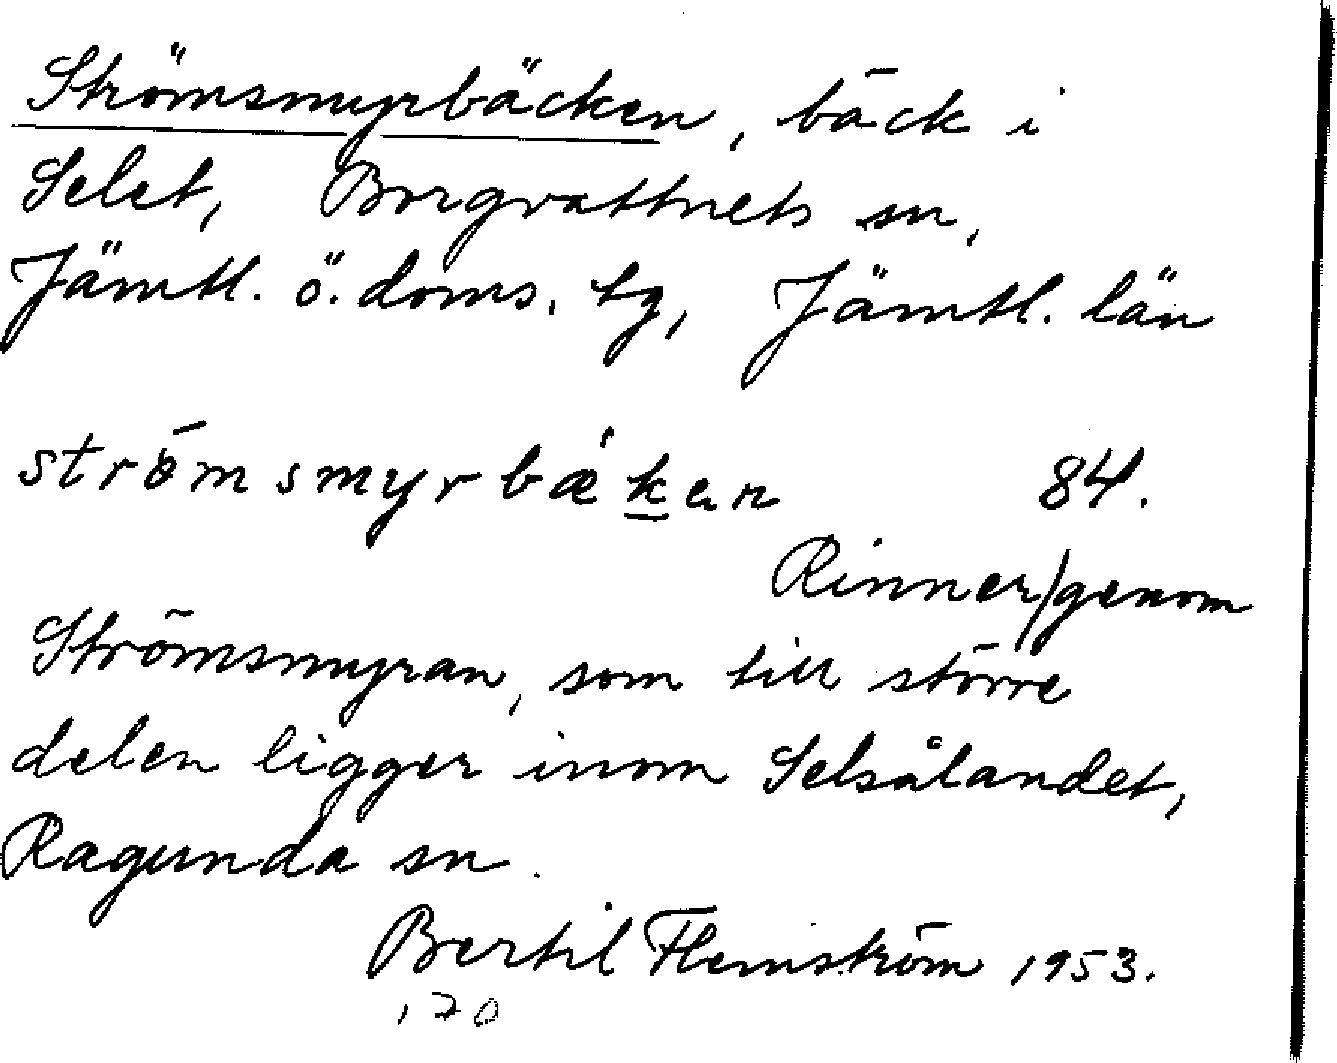 Strömsmyrbäcken, bäck i
Selet, Borgvattnets sn,
Jämtl. ö. doms. tg, Jämtl. län
strömsmyrbæken 84.
Rinner/genom
Strömsmyran, som till större
delen ligger inom Selsålandet,
Ragunda sn.
Bertil Flemström 1953.
170